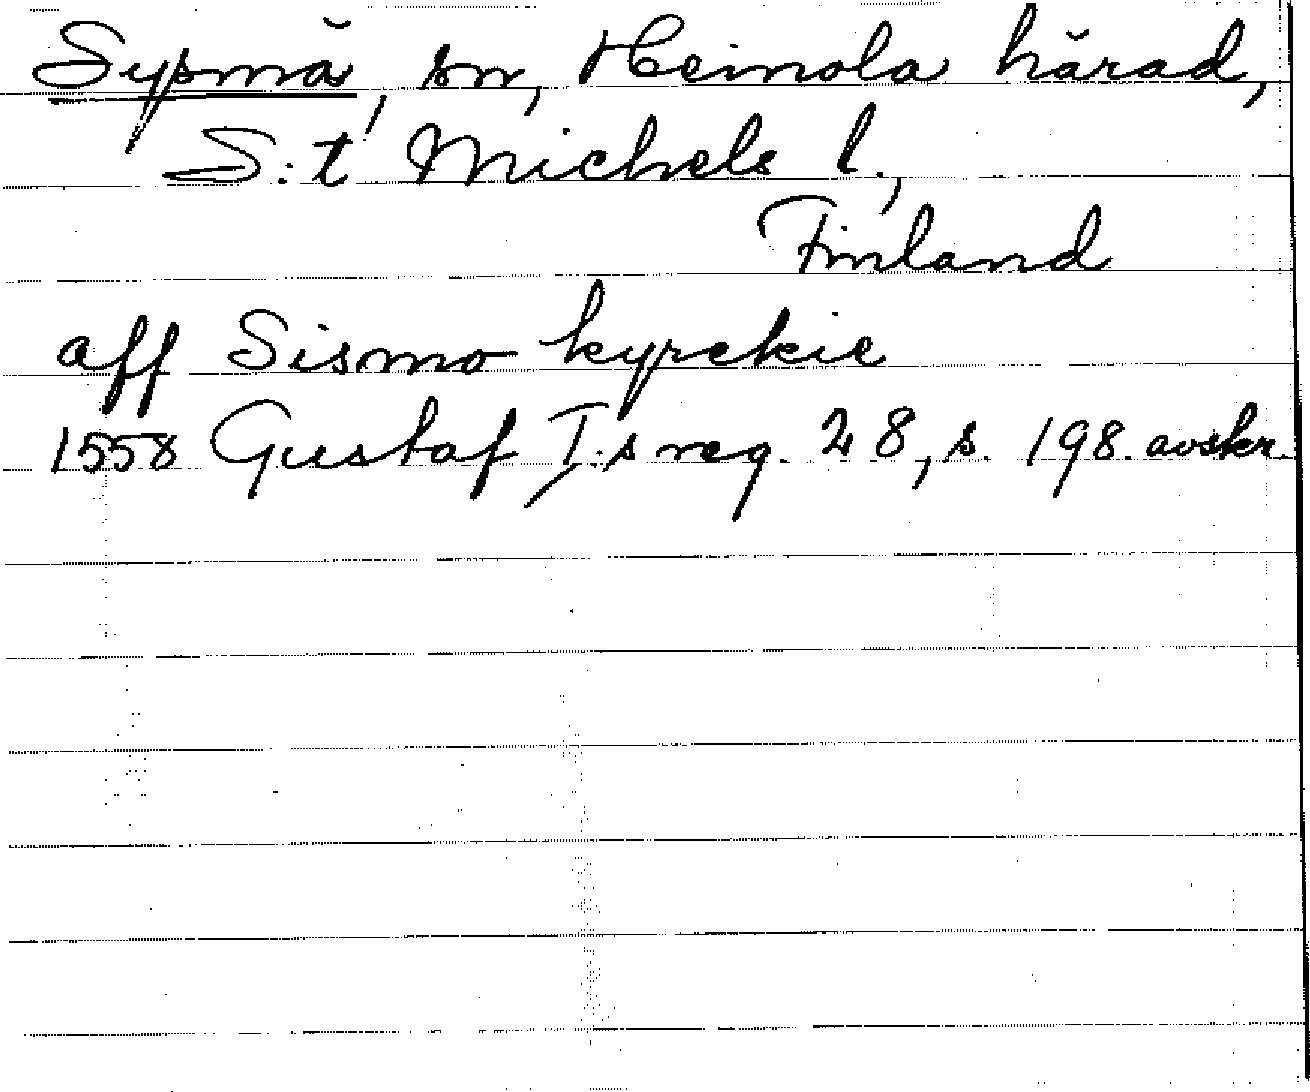 Sysmä, sn, Heinola härad,
S:t Michels l.,
Finland
aff Sismo kyrckie
1558 Gustaf I:s reg. 28, s. 198. avskr.